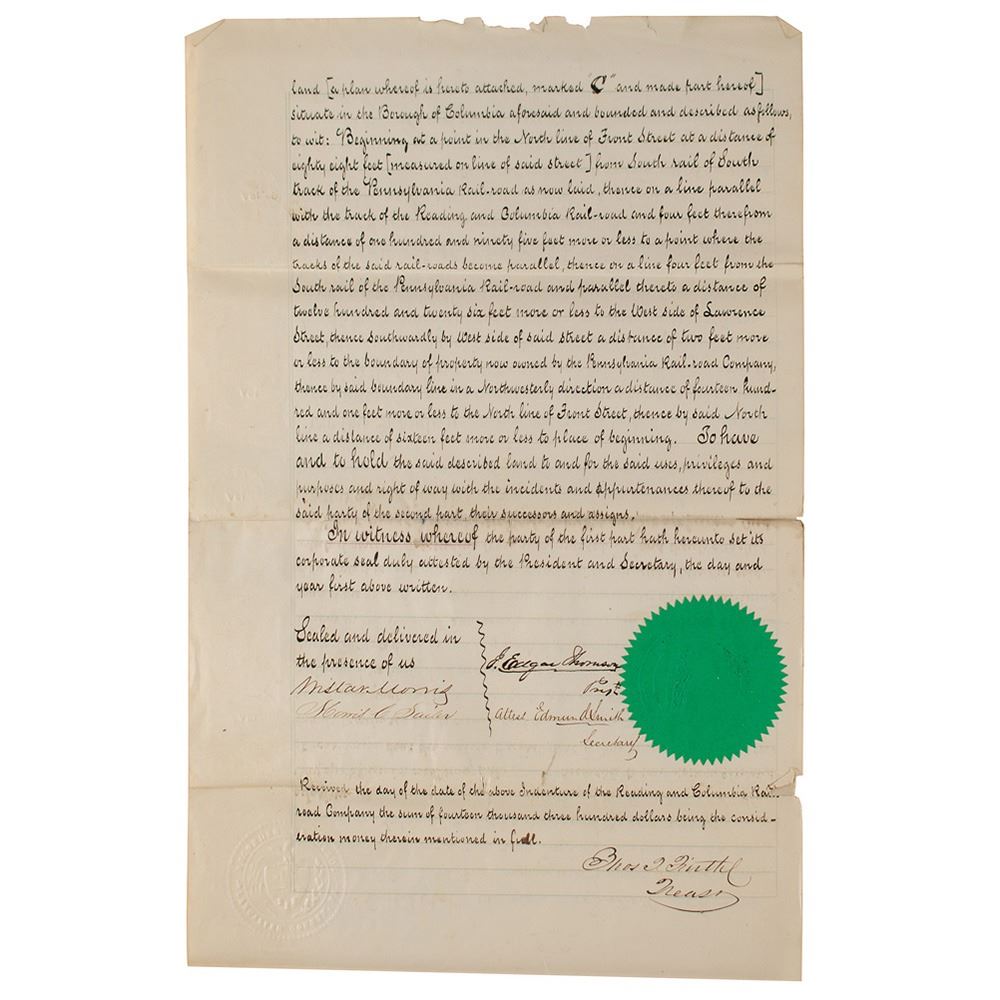 land [a plan whereof is hereto attached, marked "C" and made part hereof]
situate in the Borough of Columbia aforesaid and bounded and described as follows,
to wit: Beginning at a point in the North line of Front Street at a distance of
eighty eight feet [measured on line of said street] from South rail of South
track of the Pennsylvania Rail-road as now laid, thence on a line parallel
with the track of the Reading and Columbia Rail-road and four feet therefrom
a distance of one hundred and ninety five feet more or less to a point where the
tracks of the said rail-roads become parallel, thence on a line four feet from the
South rail of the Pennsylvania Rail-road and parallel thereto a distance of
twelve hundred and twenty six feet more or less to the West side of Lawrence
Street, thence Southwardly by West side of said street a distance of two feet more
or less to the boundary of property now owned by the Pennsylvania Rail-road Company,
thence by said boundary line in a Northwesterly direction a distance of fourteen hund-
red and one feet more or less to the North line of Front Street, thence by said North
line a distance of sixteen feet more or less to place of beginning. To have
and to hold the said described land to and for the said uses, privileges and
purposes and right of way with the incidents and appurtenances thereof to the
said party of the second part, their successors and assigns.
In witness whereof the party of the first part hath hereunto set its
corporate seal duly attested by the President and Secretary, the day and
year first above written.
Sealed and delivered in
the presence of us
J. Edgar Thomson
Prest
Attest Edmund Smith
Secretary
Received the day of the date of the above Indenture of the Reading and Columbia Rail-
road Company the sum of fourteen thousand three hundred dollars being the consid-
eration money therein mentioned in full.
Thos T Firth
Treasr